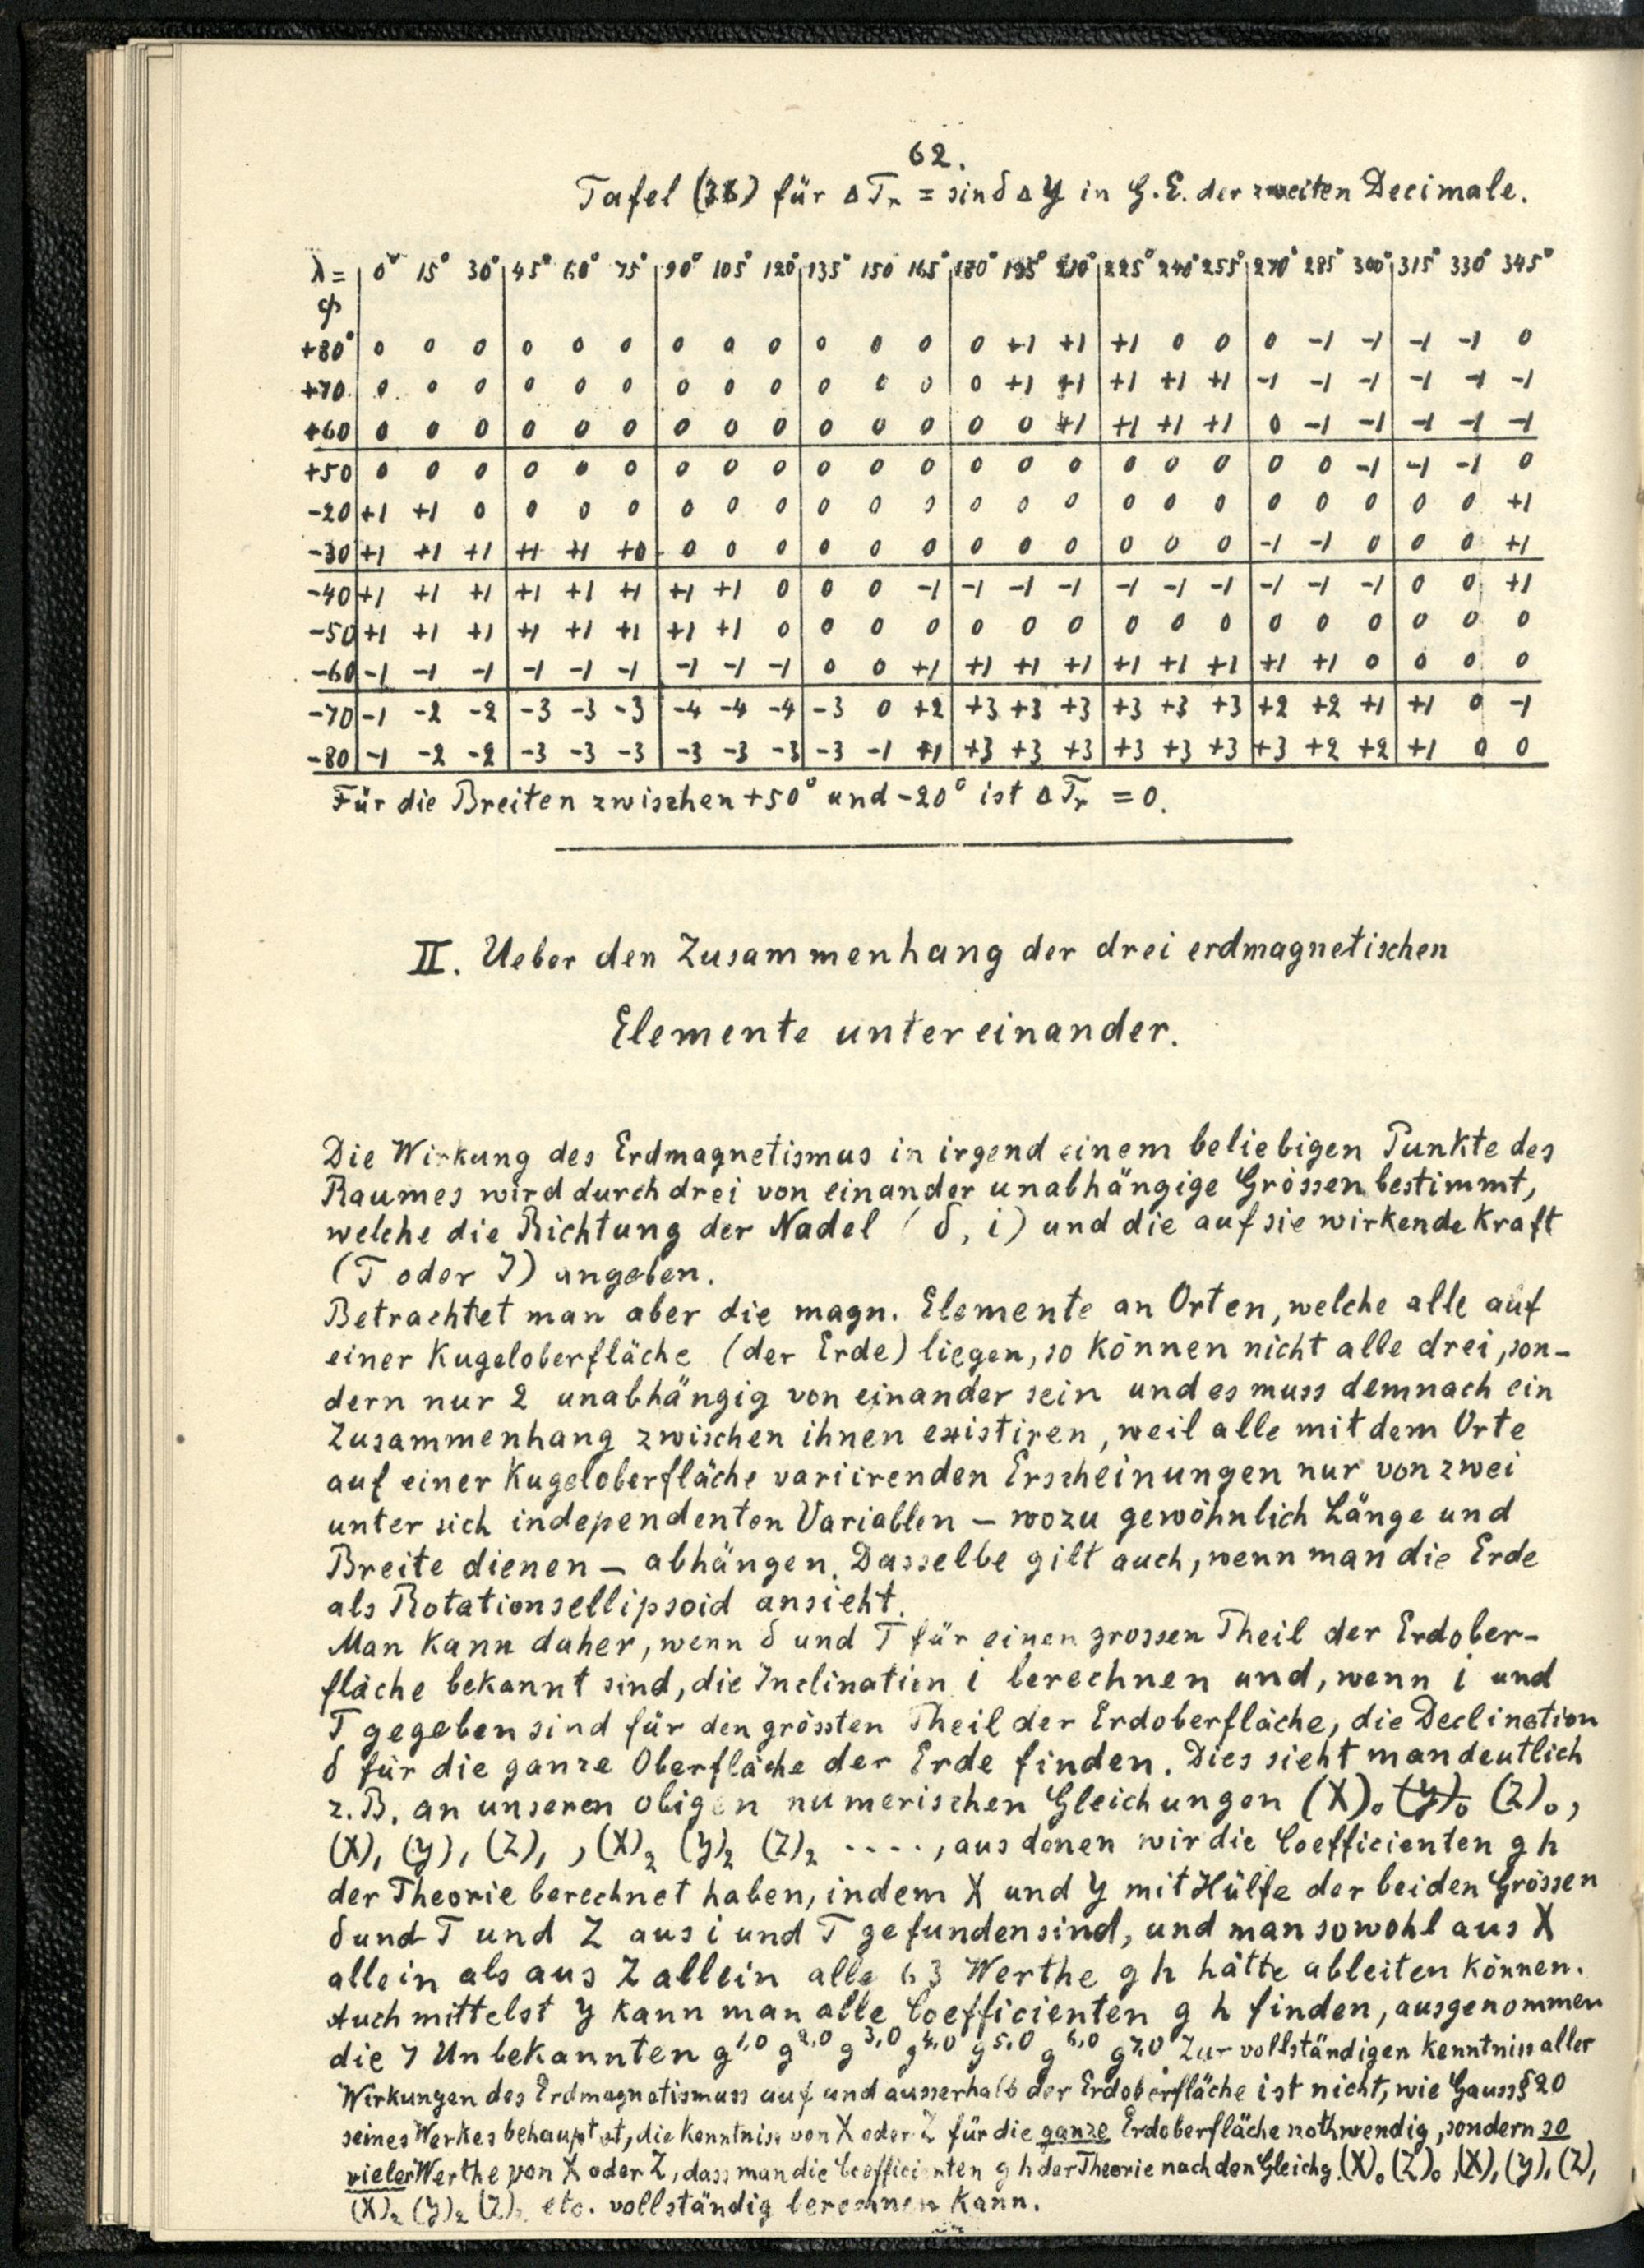 62.
Tafel (36) für Δ Tᵣ = sin δ Δ Y in G.E. der zweiten Decimale.
λ = 0° 15° 30° 45° 60° 75° 90° 105° 120° 135° 150 165° 180° 195° 210° 225° 240° 255° 270° 285° 300° 315° 330° 345°
φ
+80° 0 0 0 0 0 0 0 0 0 0 0 0 0 +1 +1 +1 0 0 0 -1 -1 -1 -1 0
+70 0 0 0 0 0 0 0 0 0 0 0 0 0 +1 +1 +1 +1 +1 -1 -1 -1 -1 -1 -1
+60 0 0 0 0 0 0 0 0 0 0 0 0 0 0 +1 +1 +1 +1 0 -1 -1 -1 -1 -1
+50 0 0 0 0 0 0 0 0 0 0 0 0 0 0 0 0 0 0 0 0 -1 -1 -1 0
-20 +1 +1 0 0 0 0 0 0 0 0 0 0 0 0 0 0 0 0 0 0 0 0 0 +1
-30 +1 +1 +1 +1 +1 +0 0 0 0 0 0 0 0 0 0 0 0 0 -1 -1 0 0 0 +1
-40 +1 +1 +1 +1 +1 +1 +1 +1 0 0 0 -1 -1 -1 -1 -1 -1 -1 -1 -1 -1 0 0 +1
-50 +1 +1 +1 +1 +1 +1 +1 +1 0 0 0 0 0 0 0 0 0 0 0 0 0 0 0 0
-60 -1 -1 -1 -1 -1 -1 -1 -1 -1 0 0 +1 +1 +1 +1 +1 +1 +1 +1 +1 0 0 0 0
-70 -1 -2 -2 -3 -3 -3 -4 -4 -4 -3 0 +2 +3 +3 +3 +3 +3 +3 +2 +2 +1 +1 0 -1
-80 -1 -2 -2 -3 -3 -3 -3 -3 -3 -3 -1 +1 +3 +3 +3 +3 +3 +3 +3 +2 +2 +1 0 0
Für die Breiten zwischen +50° und -20° ist Δ Tᵣ = 0.
II. Ueber den Zusammenhang der drei erdmagnetischen
Elemente untereinander.
Die Wirkung des Erdmagnetismus in irgend einem beliebigen Punkte des
Raumes wird durch drei von einander unabhängige Grössen bestimmt,
welche die Richtung der Nadel ( δ, i) und die auf sie wirkende Kraft
(T oder J) angeben.
Betrachtet man aber die magn. Elemente an Orten, welche alle auf
einer Kugeloberfläche (der Erde) liegen, so können nicht alle drei, son-
dern nur 2 unabhängig von einander sein und es muss demnach ein
Zusammenhang zwischen ihnen existiren, weil alle mit dem Orte
auf einer Kugeloberfläche variirenden Erscheinungen nur von zwei
unter sich independenten Variablen – wozu gewöhnlich Länge und
Breite dienen – abhängen. Dasselbe gilt auch, wenn man die Erde
als Rotationsellipsoid ansieht.
Man kann daher, wenn δ und T für einen grossen Theil der Erdober-
fläche bekannt sind, die Inclination i berechnen und, wenn i und
T gegeben sind für den grössten Theil der Erdoberfläche, die Declination
δ für die ganze Oberfläche der Erde finden. Dies sieht man deutlich
z.B. an unseren obigen numerischen Gleichungen (X)₀ (Y)₀ (Z)₀,
(X)₁ (Y)₁ (Z)₁, (X)₂ (Y)₂ (Z)₂ ...., aus denen wir die Coefficienten g h
der Theorie berechnet haben, indem X und Y mit Hülfe der beiden Grössen
δ und T und Z aus i und T gefunden sind, und man sowohl aus X
allein als aus Z allein alle 63 Werthe g h hätte ableiten können.
Auch mittelst Y kann man alle Coefficienten g h finden, ausgenommen
die 7 Unbekannten g¹·⁰ g²·⁰ g³·⁰ g⁴·⁰ g⁵·⁰ g⁶·⁰ g⁷·⁰ Zur vollständigen Kenntniss aller
Wirkungen des Erdmagnetismuss auf und ausserhalb der Erdoberfläche ist nicht, wie Gauss § 20
seines Werkes behauptet, die Kenntniss von X oder Z für die ganze Erdoberfläche nothwendig, sondern so
vieler Werthe von X oder Z, dass man die Coefficienten g h der Theorie nach den Gleichg. (X)₀ (Z)₀, (X)₁ (Y)₁ (Z)₁
(X)₂ (Y)₂ (Z)₂ etc. vollständig berechnen kann.